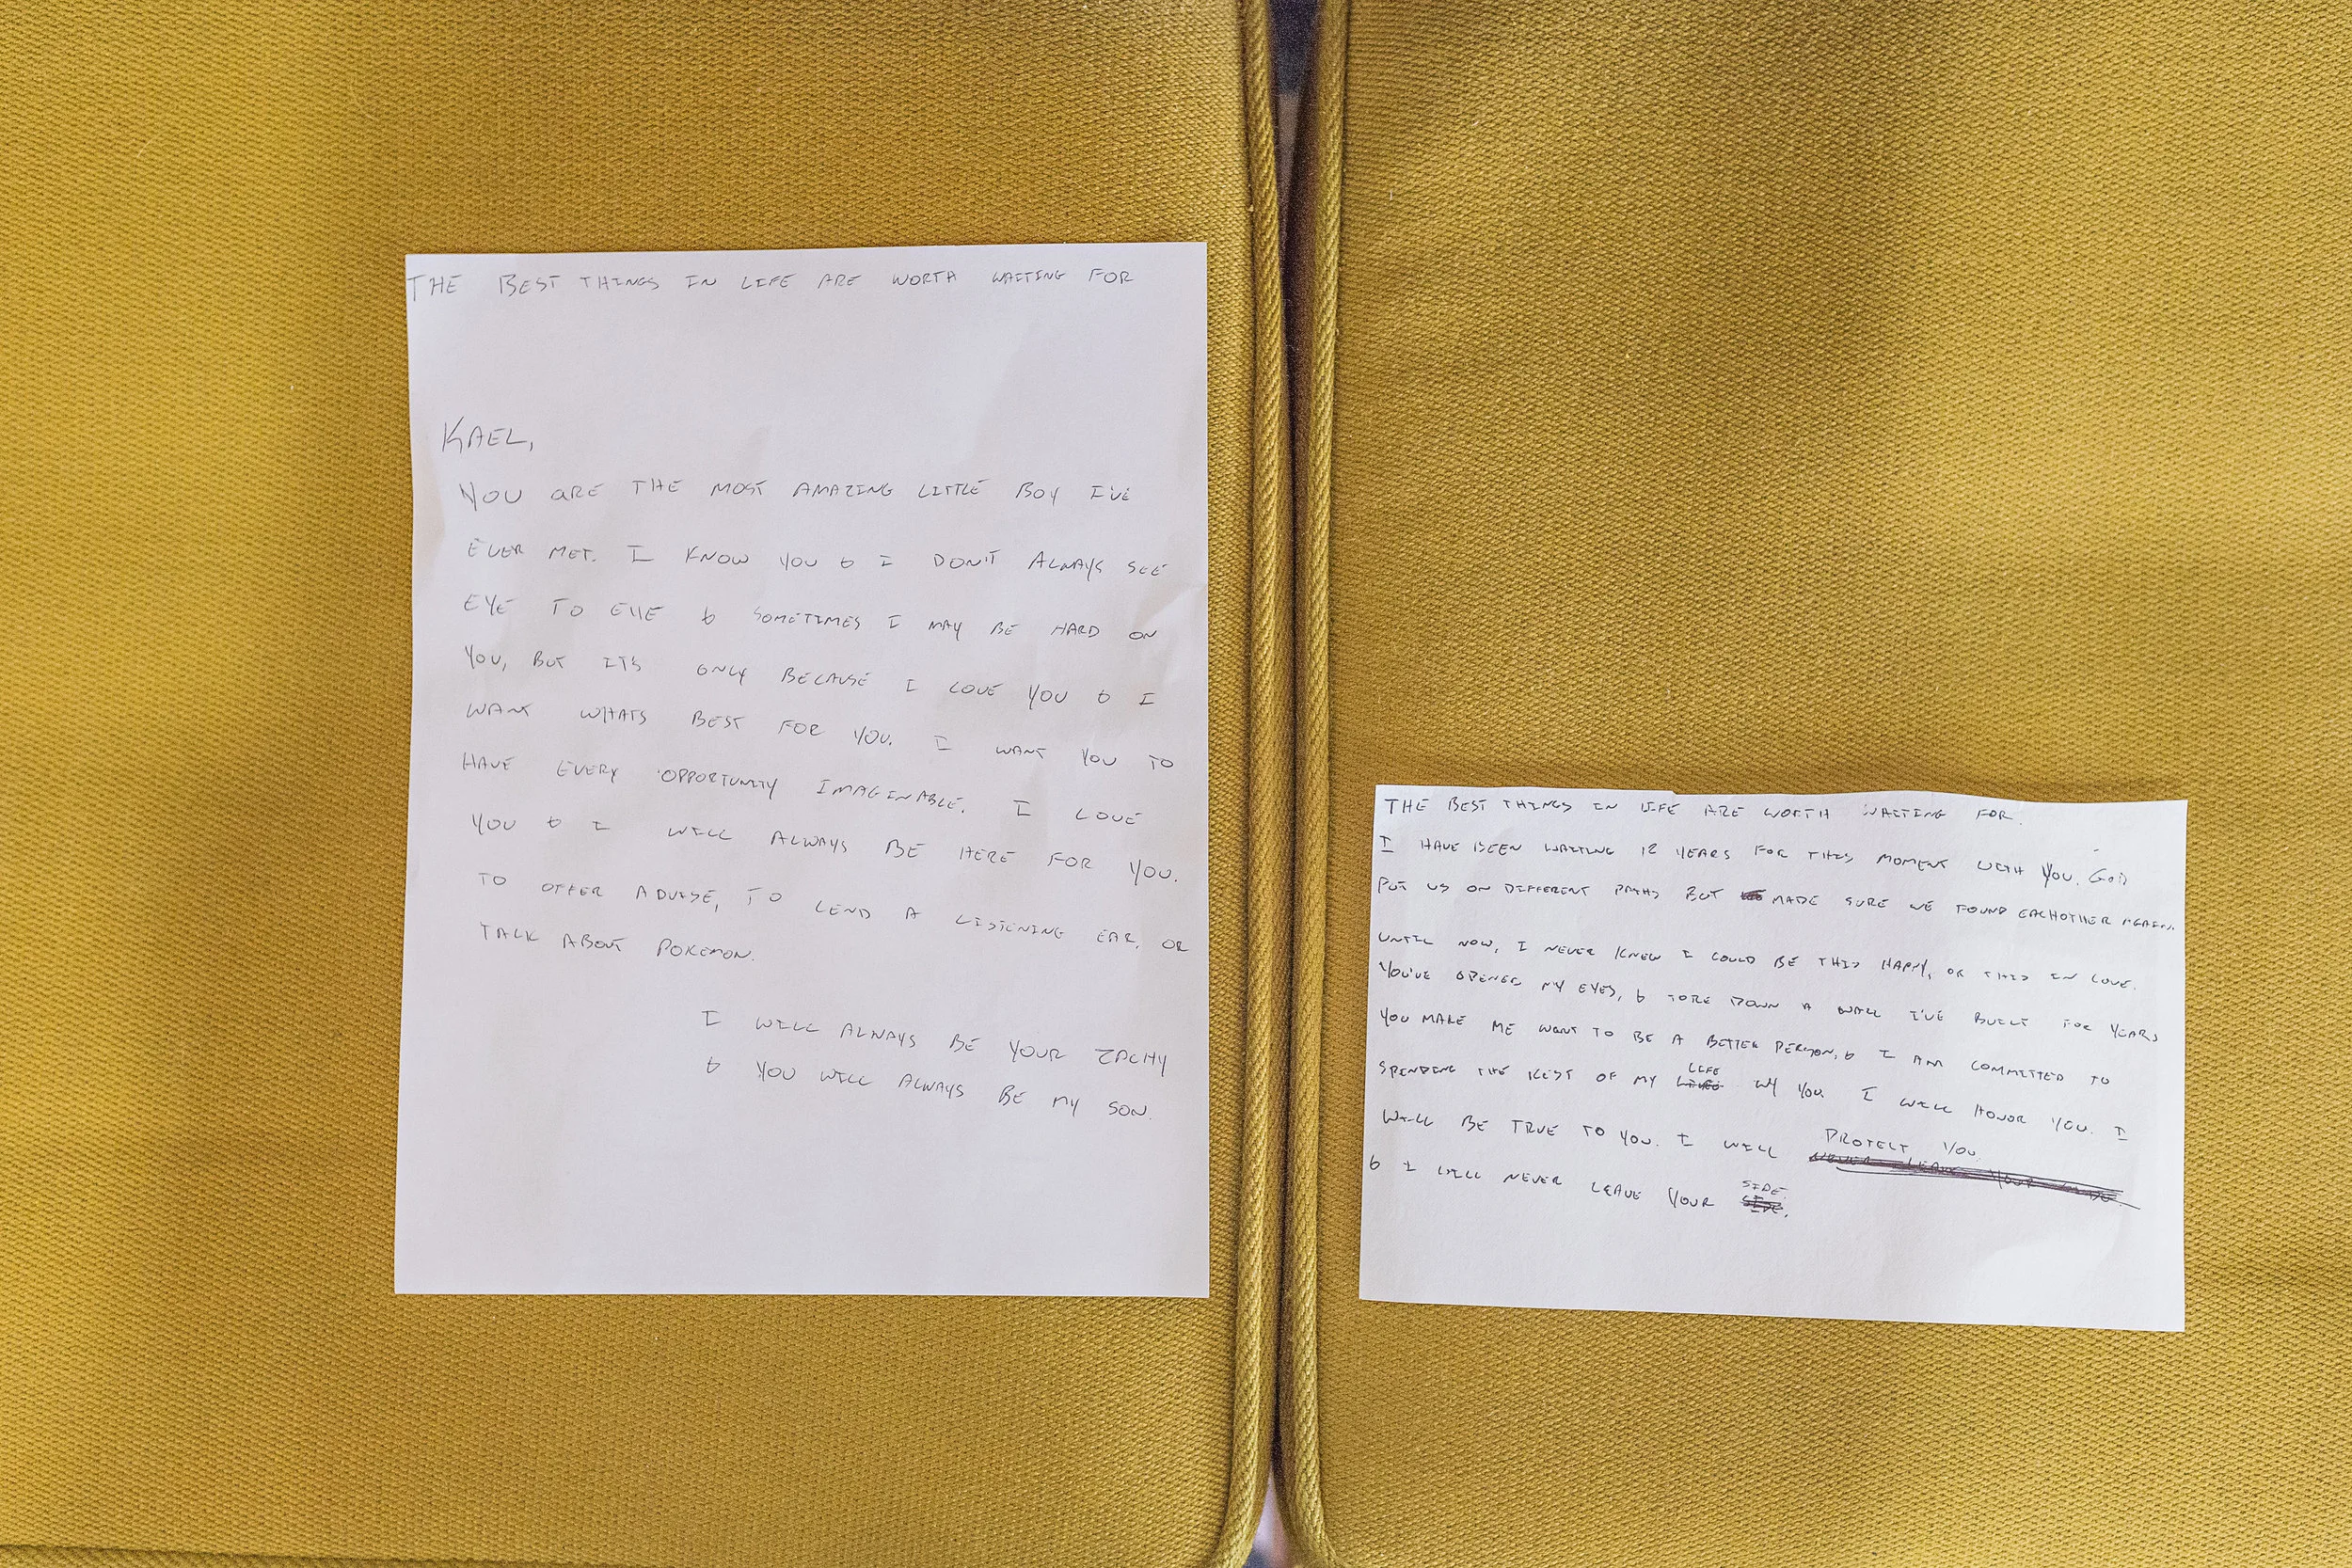 THE BEST THINGS IN LIFE ARE WORTH WAITING FOR
KAEL,
YOU ARE THE MOST AMAZING LITTLE BOY I'VE
EVER MET. I KNOW YOU & I DON'T ALWAYS SEE
EYE TO EYE & SOMETIMES I MAY BE HARD ON
YOU, BUT IT'S ONLY BECAUSE I LOVE YOU & I
WANT WHATS BEST FOR YOU. I WANT YOU TO
HAVE EVERY OPPORTUNITY IMAGINABLE. I LOVE
YOU & I WILL ALWAYS BE HERE FOR YOU.
TO OFFER ADVISE, TO LEND A LISTENING EAR, OR
TALK ABOUT POKEMON.
I WILL ALWAYS BE YOUR ZACHY
& YOU WILL ALWAYS BE MY SON.
THE BEST THINGS IN LIFE ARE WORTH WAITING FOR.
I HAVE BEEN WAITING 12 YEARS FOR THIS MOMENT WITH YOU. GOD
PUT US ON DIFFERENT PATHS BUT MADE SURE WE FOUND EACHOTHER AGAIN.
UNTIL NOW, I NEVER KNEW I COULD BE THIS HAPPY, OR THIS IN LOVE.
YOU'VE OPENED MY EYES, & TORE DOWN A WALL I'VE BUILT FOR YEARS
YOU MAKE ME WANT TO BE A BETTER PERSON, & I AM COMMITTED TO
SPENDING THE REST OF MY LIFE W/ YOU. I WILL HONOR YOU. I
WILL BE TRUE TO YOU. I WILL PROTECT YOU.
NEVER LEAVE YOUR SIDE.
& I WILL NEVER LEAVE YOUR SIDE.